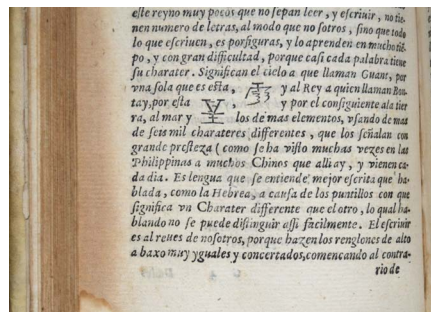 este reyno muy pocos que no sepan leer, y escriuir, no tie-
nen numero de letras, al modo que nosotros, sino que todo
lo que escriuen, es por figuras, y lo aprenden en mucho tiẽ-
po, y con gran difficultad, porque casi cada palabra tiene
su charater. Significan el cielo a que llaman Guant, por
vna sola que es esta, y al Rey a quien llaman Bon-
tay, por esta , y por el consiguiente ala tier
ra, al mar y los de mas elementos, vsando de mas
de seis mil charateres differentes, que los señalan con
grande presteza (como se ha visto muchas vezes en las
Philippinas a muchos Chinos que alli ay, y vienen ca-
da dia. Es lengua que se entiende mejor escrita que ha-
blada, como la Hebrea, a causa de los puntillos con que
significa vn Charater differente que el otro, lo qual ha-
blando no se puede distinguir assi fácilmente. El escriuir
es al reues de nosotros, porque hazen los renglones de alto
a baxo muy yguales y concertados, comencando al contra-
rio de